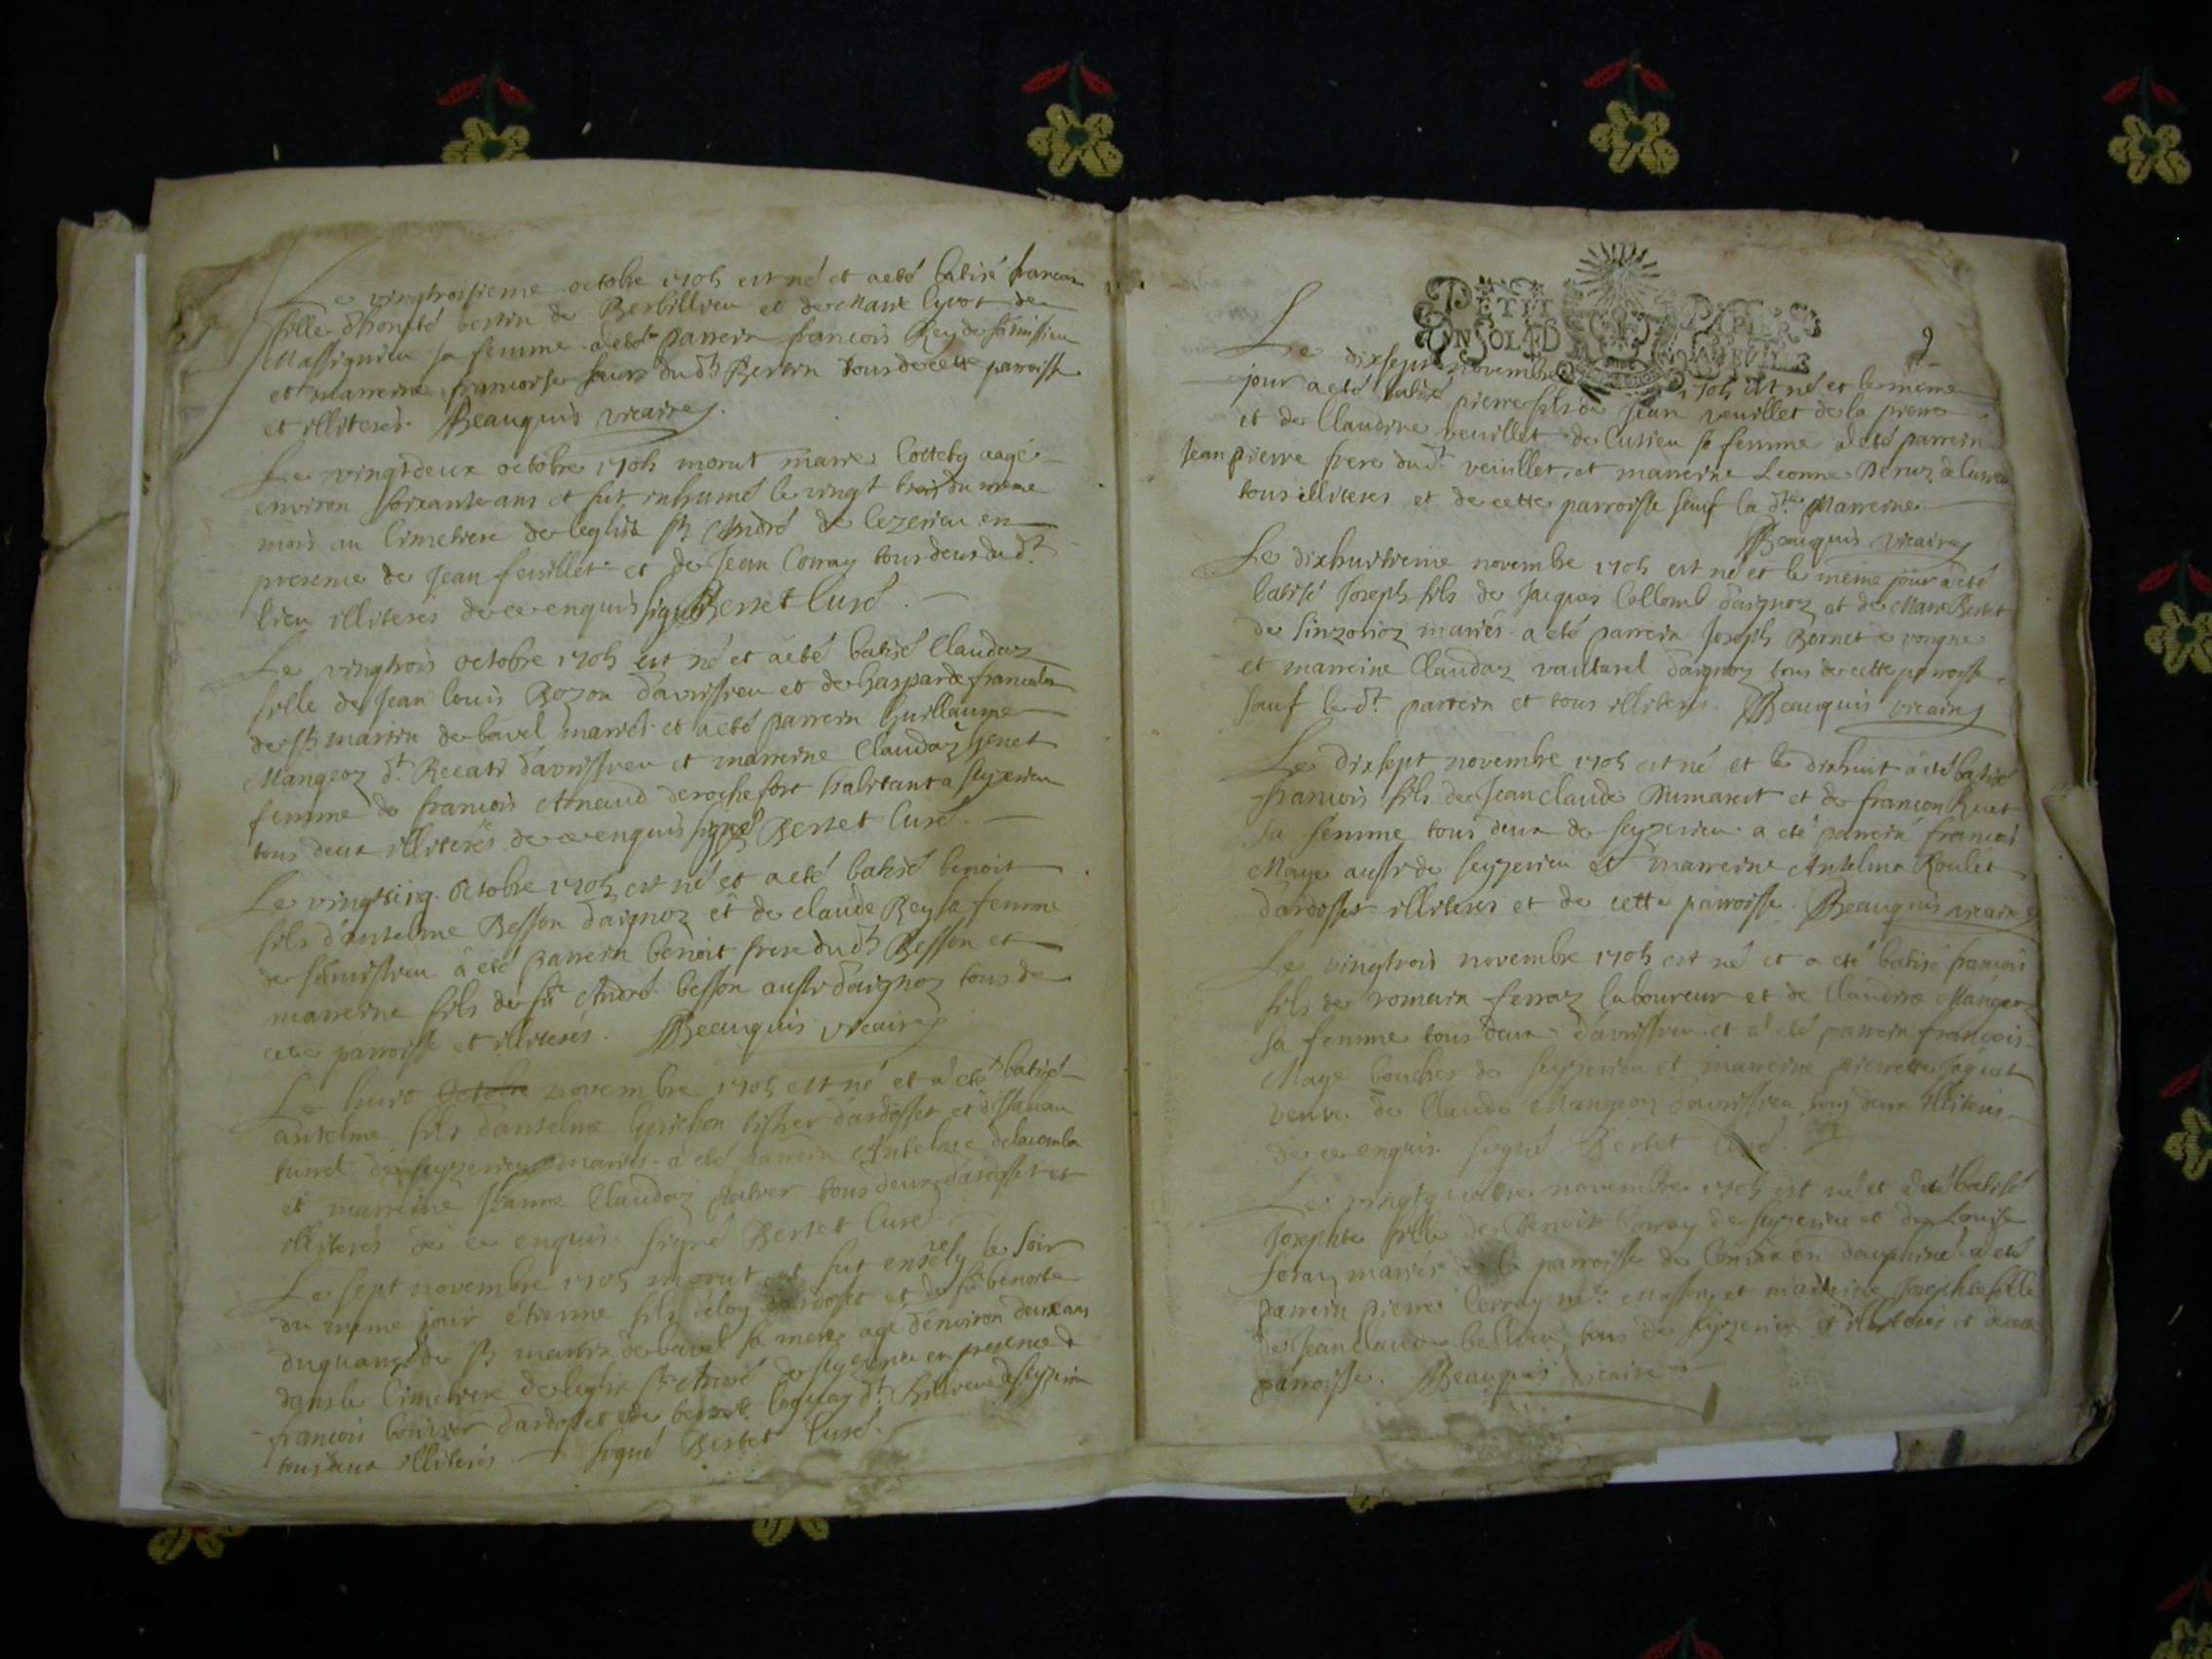 Le vingtroisieme octobre 1705 est né et a eté batisé francois
fille d'honoré bertin de Berbillieu et de Marie
Massignieu sa femme a eté parrein francois Rey de
et marreine francoise soeur du dt Bertin tous de cette parroisse
et illiterés. Beauquis vicaire
Le vingtdeux octobre 1705 morut marie aagé
environ soixante ans et fut inhumé le vingt trois du meme
mois au Cimetiere de leglise St André de Cezerieu en
presence de Jean feuillet et de Jean Corray tous deux du dt
lieu illiterés de ce enquis signé Bertet Curé.
Le vingtrois octobre 1705 est né et a eté batisé Claudaz
fille de Jean louis Bozon d'avrissieu et de gasparde
de St martin de bavel mariés et a eté parrein Guillaume
Mangeoz dt d'avrissieu et marreine Claudaz genet
femme de francois Arnaud de rochefort habitant a seyzerieu
tous deux illiterés de ce enquis signé Bertet Curé.
Le vingtcinq Octobre 1705 est né et a eté batisé benoit
fils d'antelme Besson d'aignoz et de claude Rey sa femme
de a eté parrein benoit frere du dt Besson et
marreine fils de fû André besson aussi d'aignoz tous de
cette parroisse et illiterés. Beauquis vicaire
Le huit Octobre novembre 1705 est né et a eté batisé
antelme fils d'antelme tisser d'ardosset et
de seyzerieu mariés. a eté parrein Antelme delacombe
et marreine Jeanne Claudaz tous deux d'ardosset et
illiterés de ce enquis. signé Bertet Curé.
Le sept novembre 1705 morut et fut ensevely le soir
du meme jour étienne fils d'eloy d'ardosset et de fû benoite
de St martin de bavel sa mere agé d'environ deux ans
dans le Cimetiere de leglise St André de seyzerieu en presence de
francois bouvier d'ardosset et de benoit dt de seyzerieu
tous deux illiterés signé Bertet Curé.
PETIT PAPIER
UN SOL 4 D LA FEUILLE
9
Le dixsept novembre 1705 est né et le meme
jour a eté batisé pierre fils de Jean veuillet de la pierre
et de Claudine veuillet de Cusieu sa femme a eté parrein
Jean pierre frere du dt veuillet, et marreine Leonne
tous illiteres et de cette parroisse sauf la dte Marreine
Beauquis vicaire
Le dixhuitieme novembre 1705 est né et le meme jour a eté
batisé Joseph fils de Jacques Collomb d'aignoz et de Marie Bertet
de mariés a eté parrein Joseph Bornet a vongne
et marreine Claudaz vautarel d'aignoz tous de cette parroisse
sauf le dt parrein et tous illiterés. Beauquis vicaire
Le dixsept novembre 1705 est né et le dixhuit a eté batisé
francois fils de Jean claude Dumarest et de francon
sa femme tous deux de seyzerieu. a eté parrein francois
Maye aussi de seyzerieu et marreine Antelma Roulet
d'ardosset illiteres et de cette parroisse. Beauquis vicaire
Le vingtrois novembre 1705 est né et a eté batisé francois
fils de romain ferraz laboureur et de Claudine Mangeoz
sa femme tous deux d'avrissieu et a eté parrein francois
Maye boucher de seyzerieu et marreine pierrette Jaquet
veuve de Claude Mangeoz d'avrissieu tous deux illiterés
de ce enquis. signé Bertet Curé.
Le vingtquatre novembre 1705 est né et a eté batisé
Josephte fille de Benoit Corray de seyzerieu et de Louise
mariés de la parroisse de en dauphiné a eté
parrein pierre Corray me et marreine Josephte fille
de Jean claude tous de seyzerieu et illiterés et de cette
parroisse. Beauquis vicaire